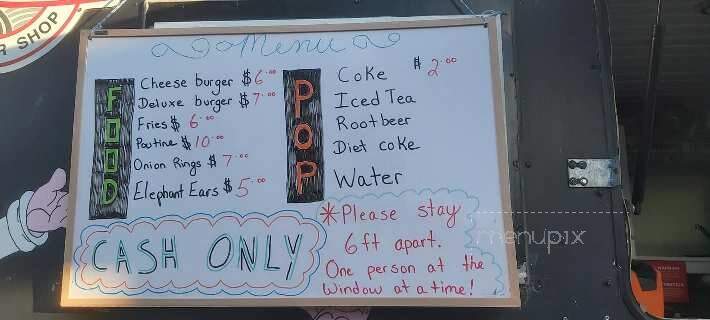 R SHOP
Menu
FOOD
Cheese burger $6.00
Deluxe burger $7.00
Fries $ 6.00
Poutine $10.00
Onion Rings $7.00
Elephant Ears $5.00
POP
Coke $2.00
Iced Tea
Rootbeer
Diet coke
Water
CASH ONLY
*Please stay
6ft apart.
One person at the
window at a time!
menupix